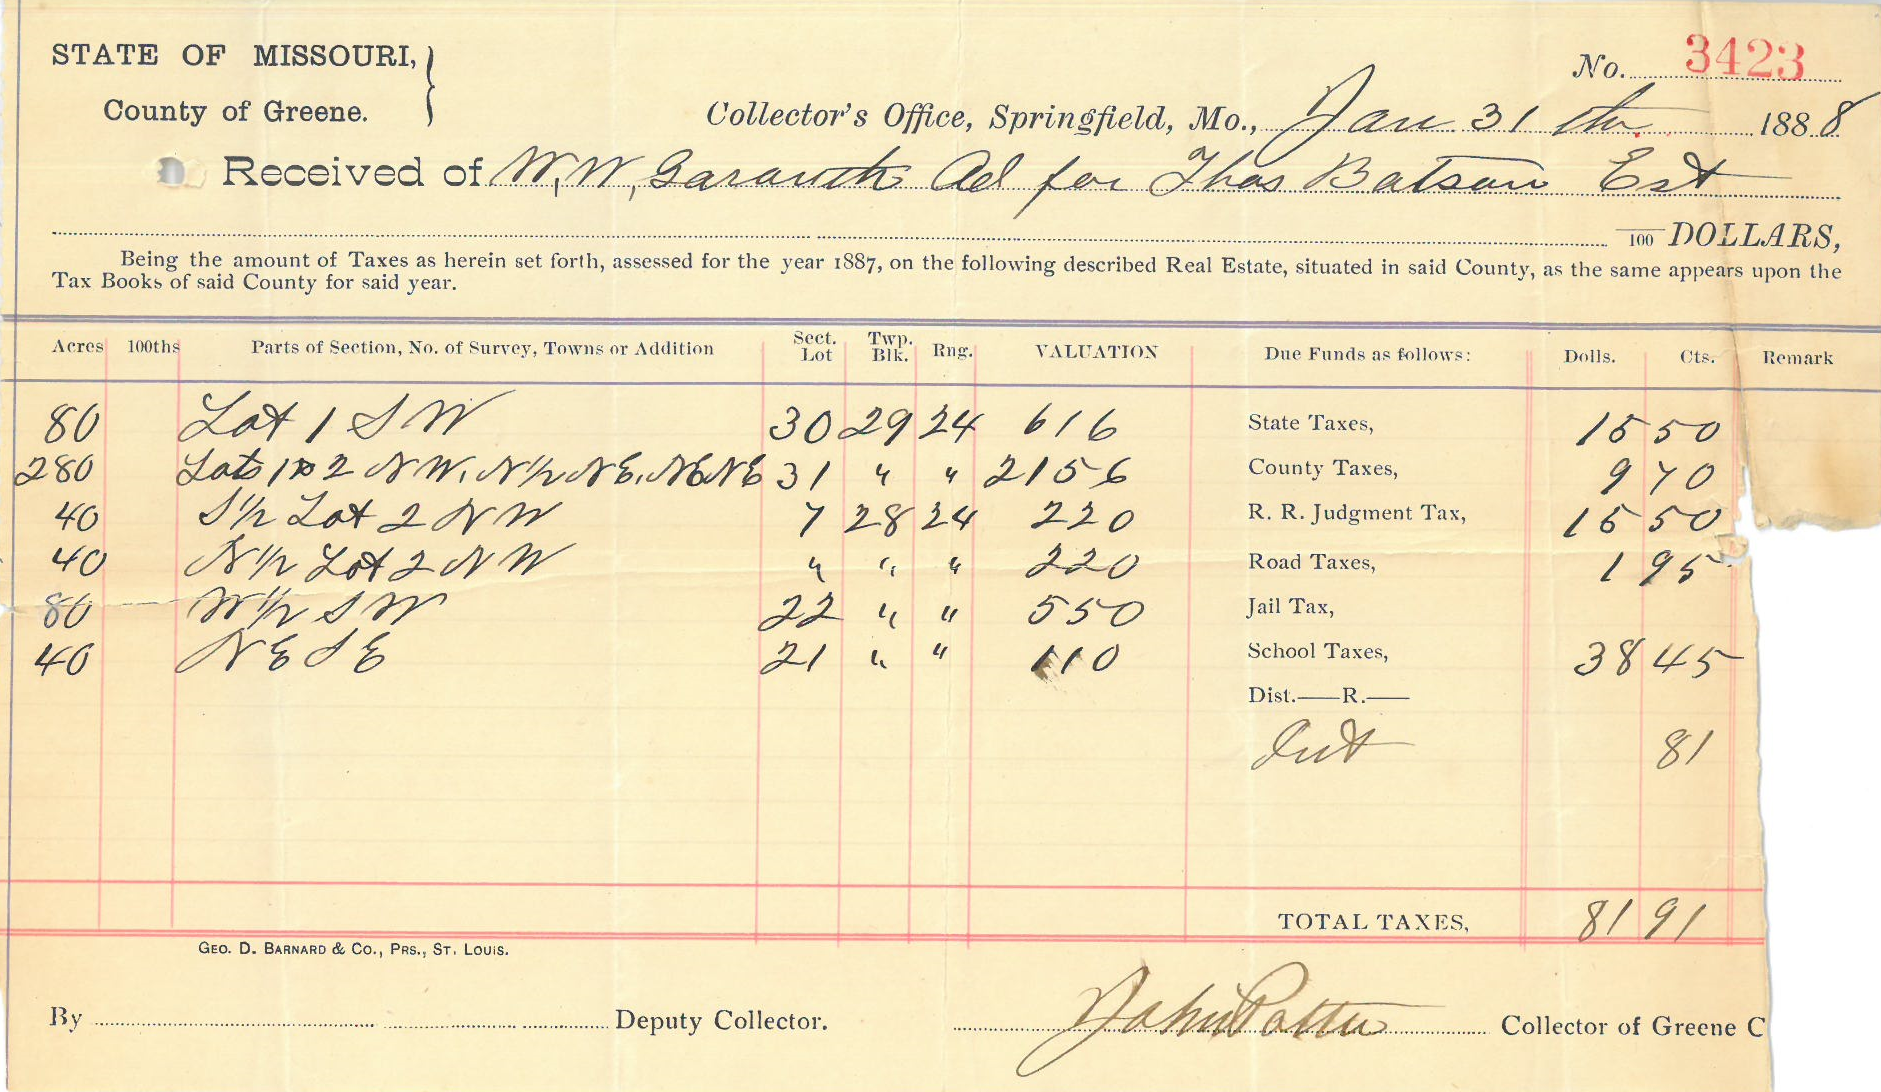 STATE OF MISSOURI,
County of Greene.
No. 3423
Collector's Office, Springfield, Mo., Jan 31 1888
Received of W, W, Garouth Ad for Thos Batson Est
/100 DOLLARS,
Being the amount of Taxes as herein set forth, assessed for the year 1887, on the following described Real Estate, situated in said County, as the same appears upon the
Tax Books of said County for said year.
Acres 100ths Parts of Section, No. of Survey, Towns or Addition Sect. Lot Twp. Blk. Rng. VALUATION Due Funds as follows: Dolls. Cts. Remark
80 Lot 1 S W 30 29 24 616 State Taxes, 15 50
280 Lots 1 & 2 N W, N 1/2 N E, N E N E 31 " " 2156 County Taxes, 9 70
40 S 1/2 Lot 2 N W 7 28 24 220 R. R. Judgment Tax, 15 50
40 N 1/2 Lot 2 N W " " " 220 Road Taxes, 1 95
80 W 1/2 S W 22 " " 550 Jail Tax,
40 N E S E 21 " " 110 School Taxes, 38 45
Dist.——R.——
Int 81
TOTAL TAXES, 81 91
GEO. D. BARNARD & CO., PRS., ST. LOUIS.
By Deputy Collector. John Potter Collector of Greene C